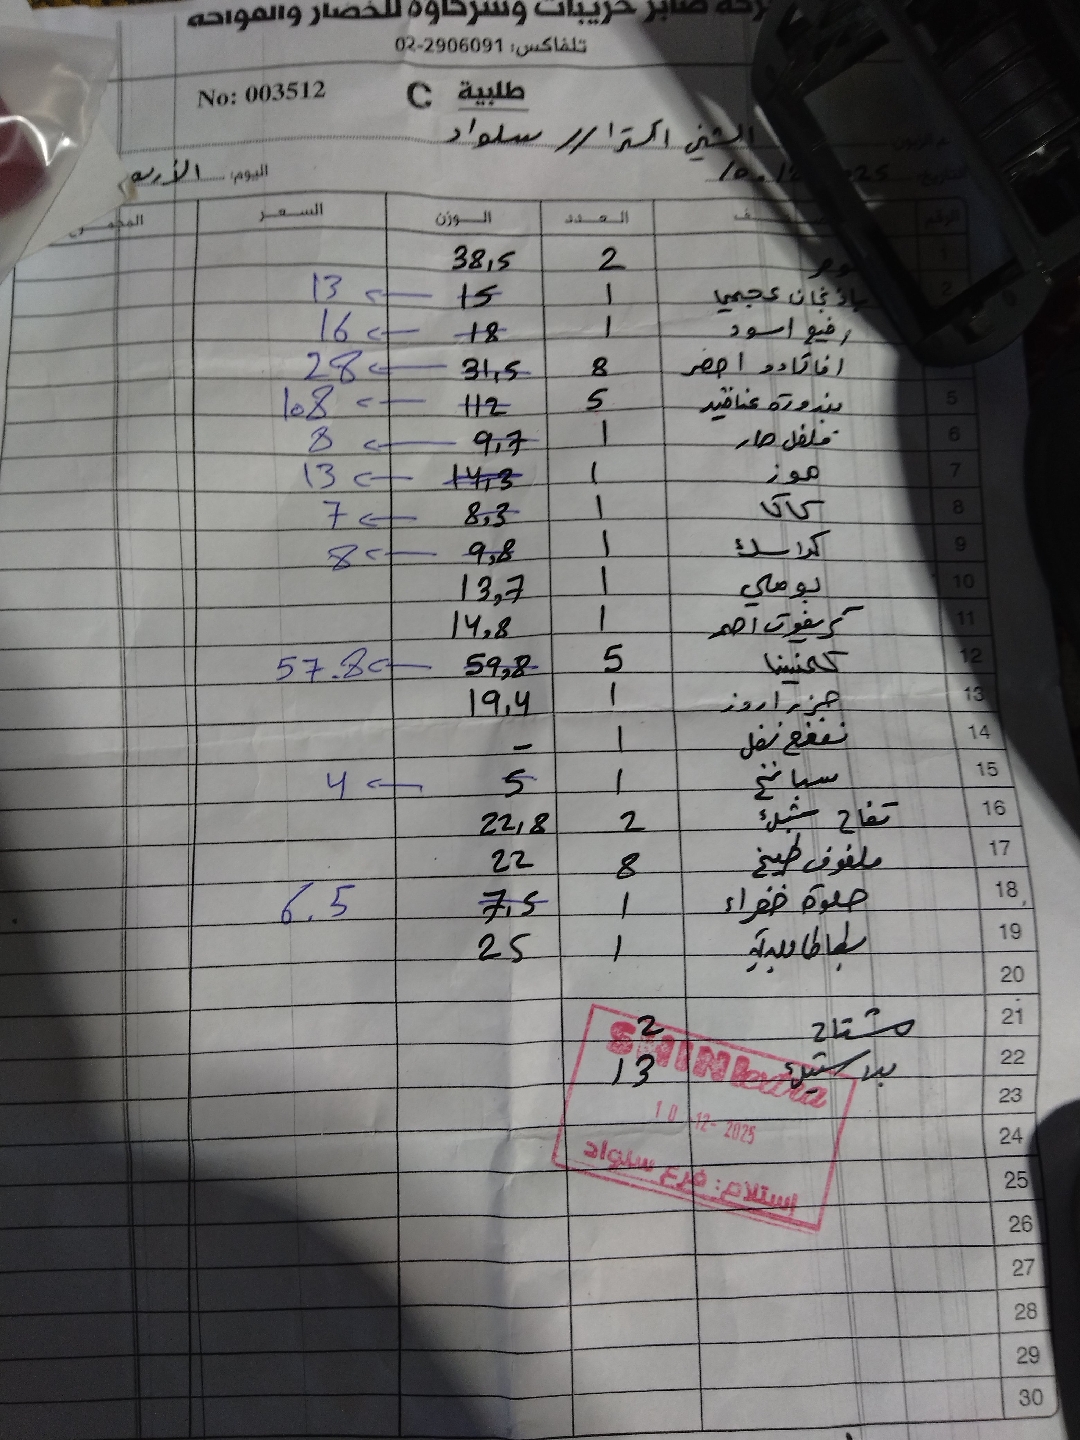 صابر حريبات وشركاؤه للخضار والفواكه
تلفاكس: 02-2906091
No: 003512 طلبية C
الشني اكسترا // سلواد
التاريخ: 10.12.2025 اليوم: الأربعاء
الرقم العدد الوزن السعر
1 2 38,5
2 باذنجان عجمي 1 15 ← 13
رفيع اسود 1 18 ← 16
افاكادو اخضر 8 31,5 ← 28
5 بندورة عناقيد 5 112 ← 108
6 فلفل حار 1 9,7 ← 8
7 موز 1 14,3 ← 13
8 كاكا 1 8,3 ← 7
9 1 9,8 ← 8
10 بوملي 1 13,7
11 كريفوت احمر 1 14,8
12 كلمنتينا 5 59,8 ← 57.8
13 جزر 1 19,4
14 نعنع 1 -
15 سبانخ 1 5 ← 4
16 تفاح 2 22,8
17 ملفوف طبيخ 8 22
18 حلوة خضراء 1 7,5 6.5
19 بطاطا 1 25
20
21 مشتاح 2
22 بلاستيك 13
23
SHINI extra
10-12-2025
استلام: فرع سلواد
24
25
26
27
28
29
30